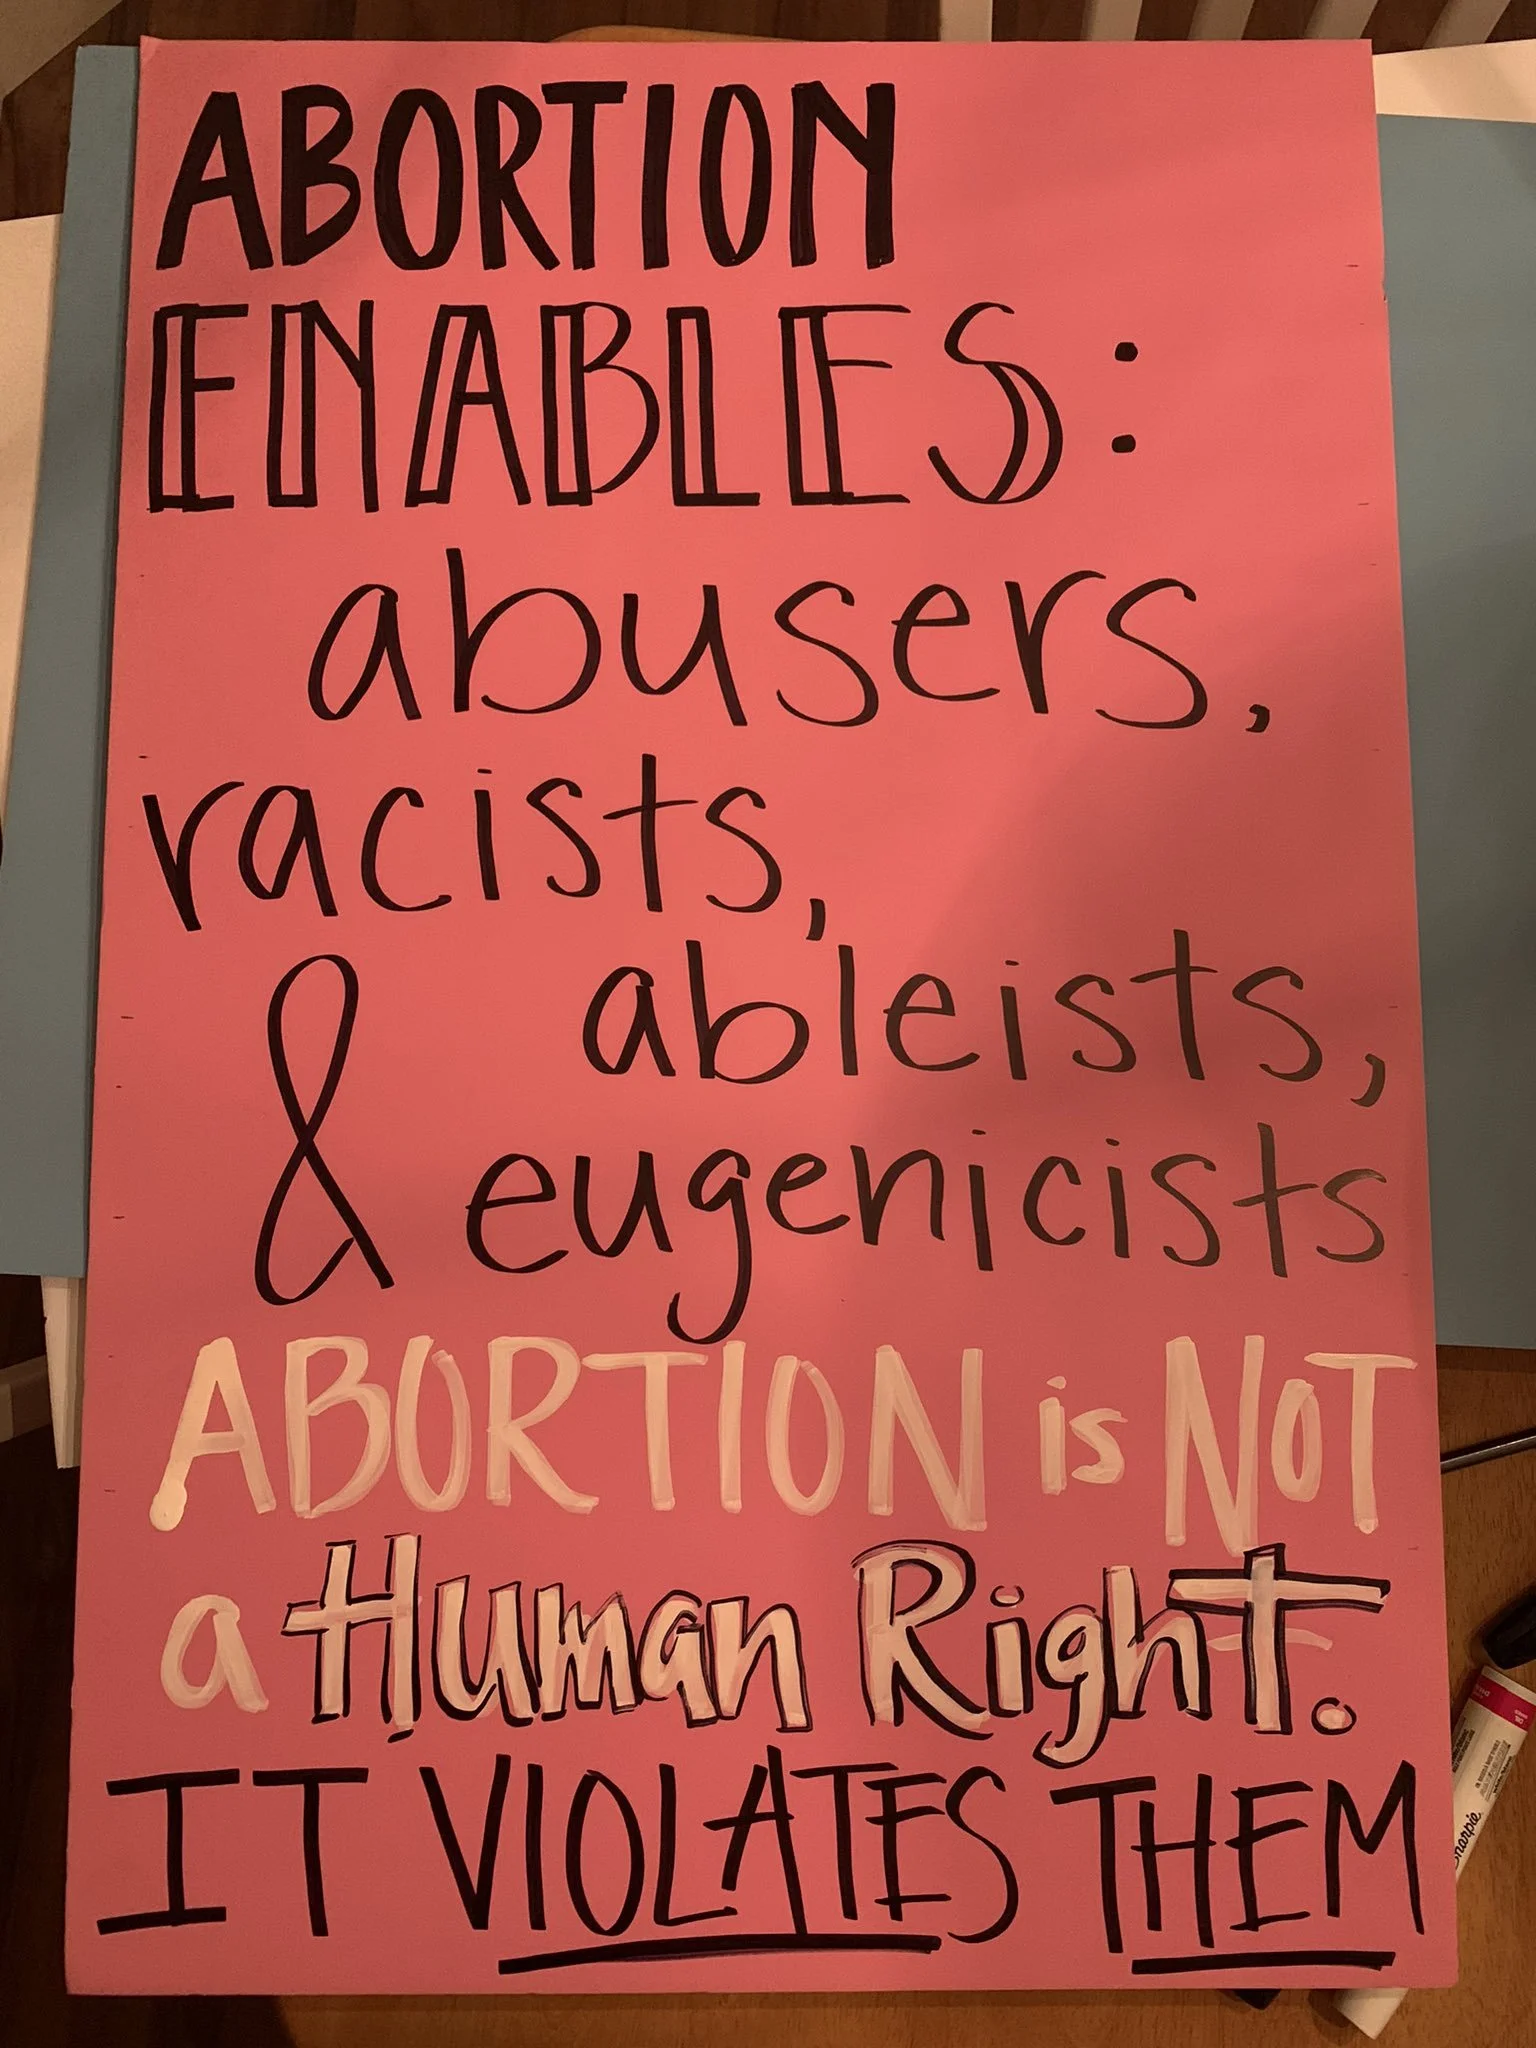 ABORTION
ENABLES:
abusers,
racists,
ableists,
& eugenicists
ABORTION is NOT
a Human Right.
IT VIOLATES THEM
Sharpie